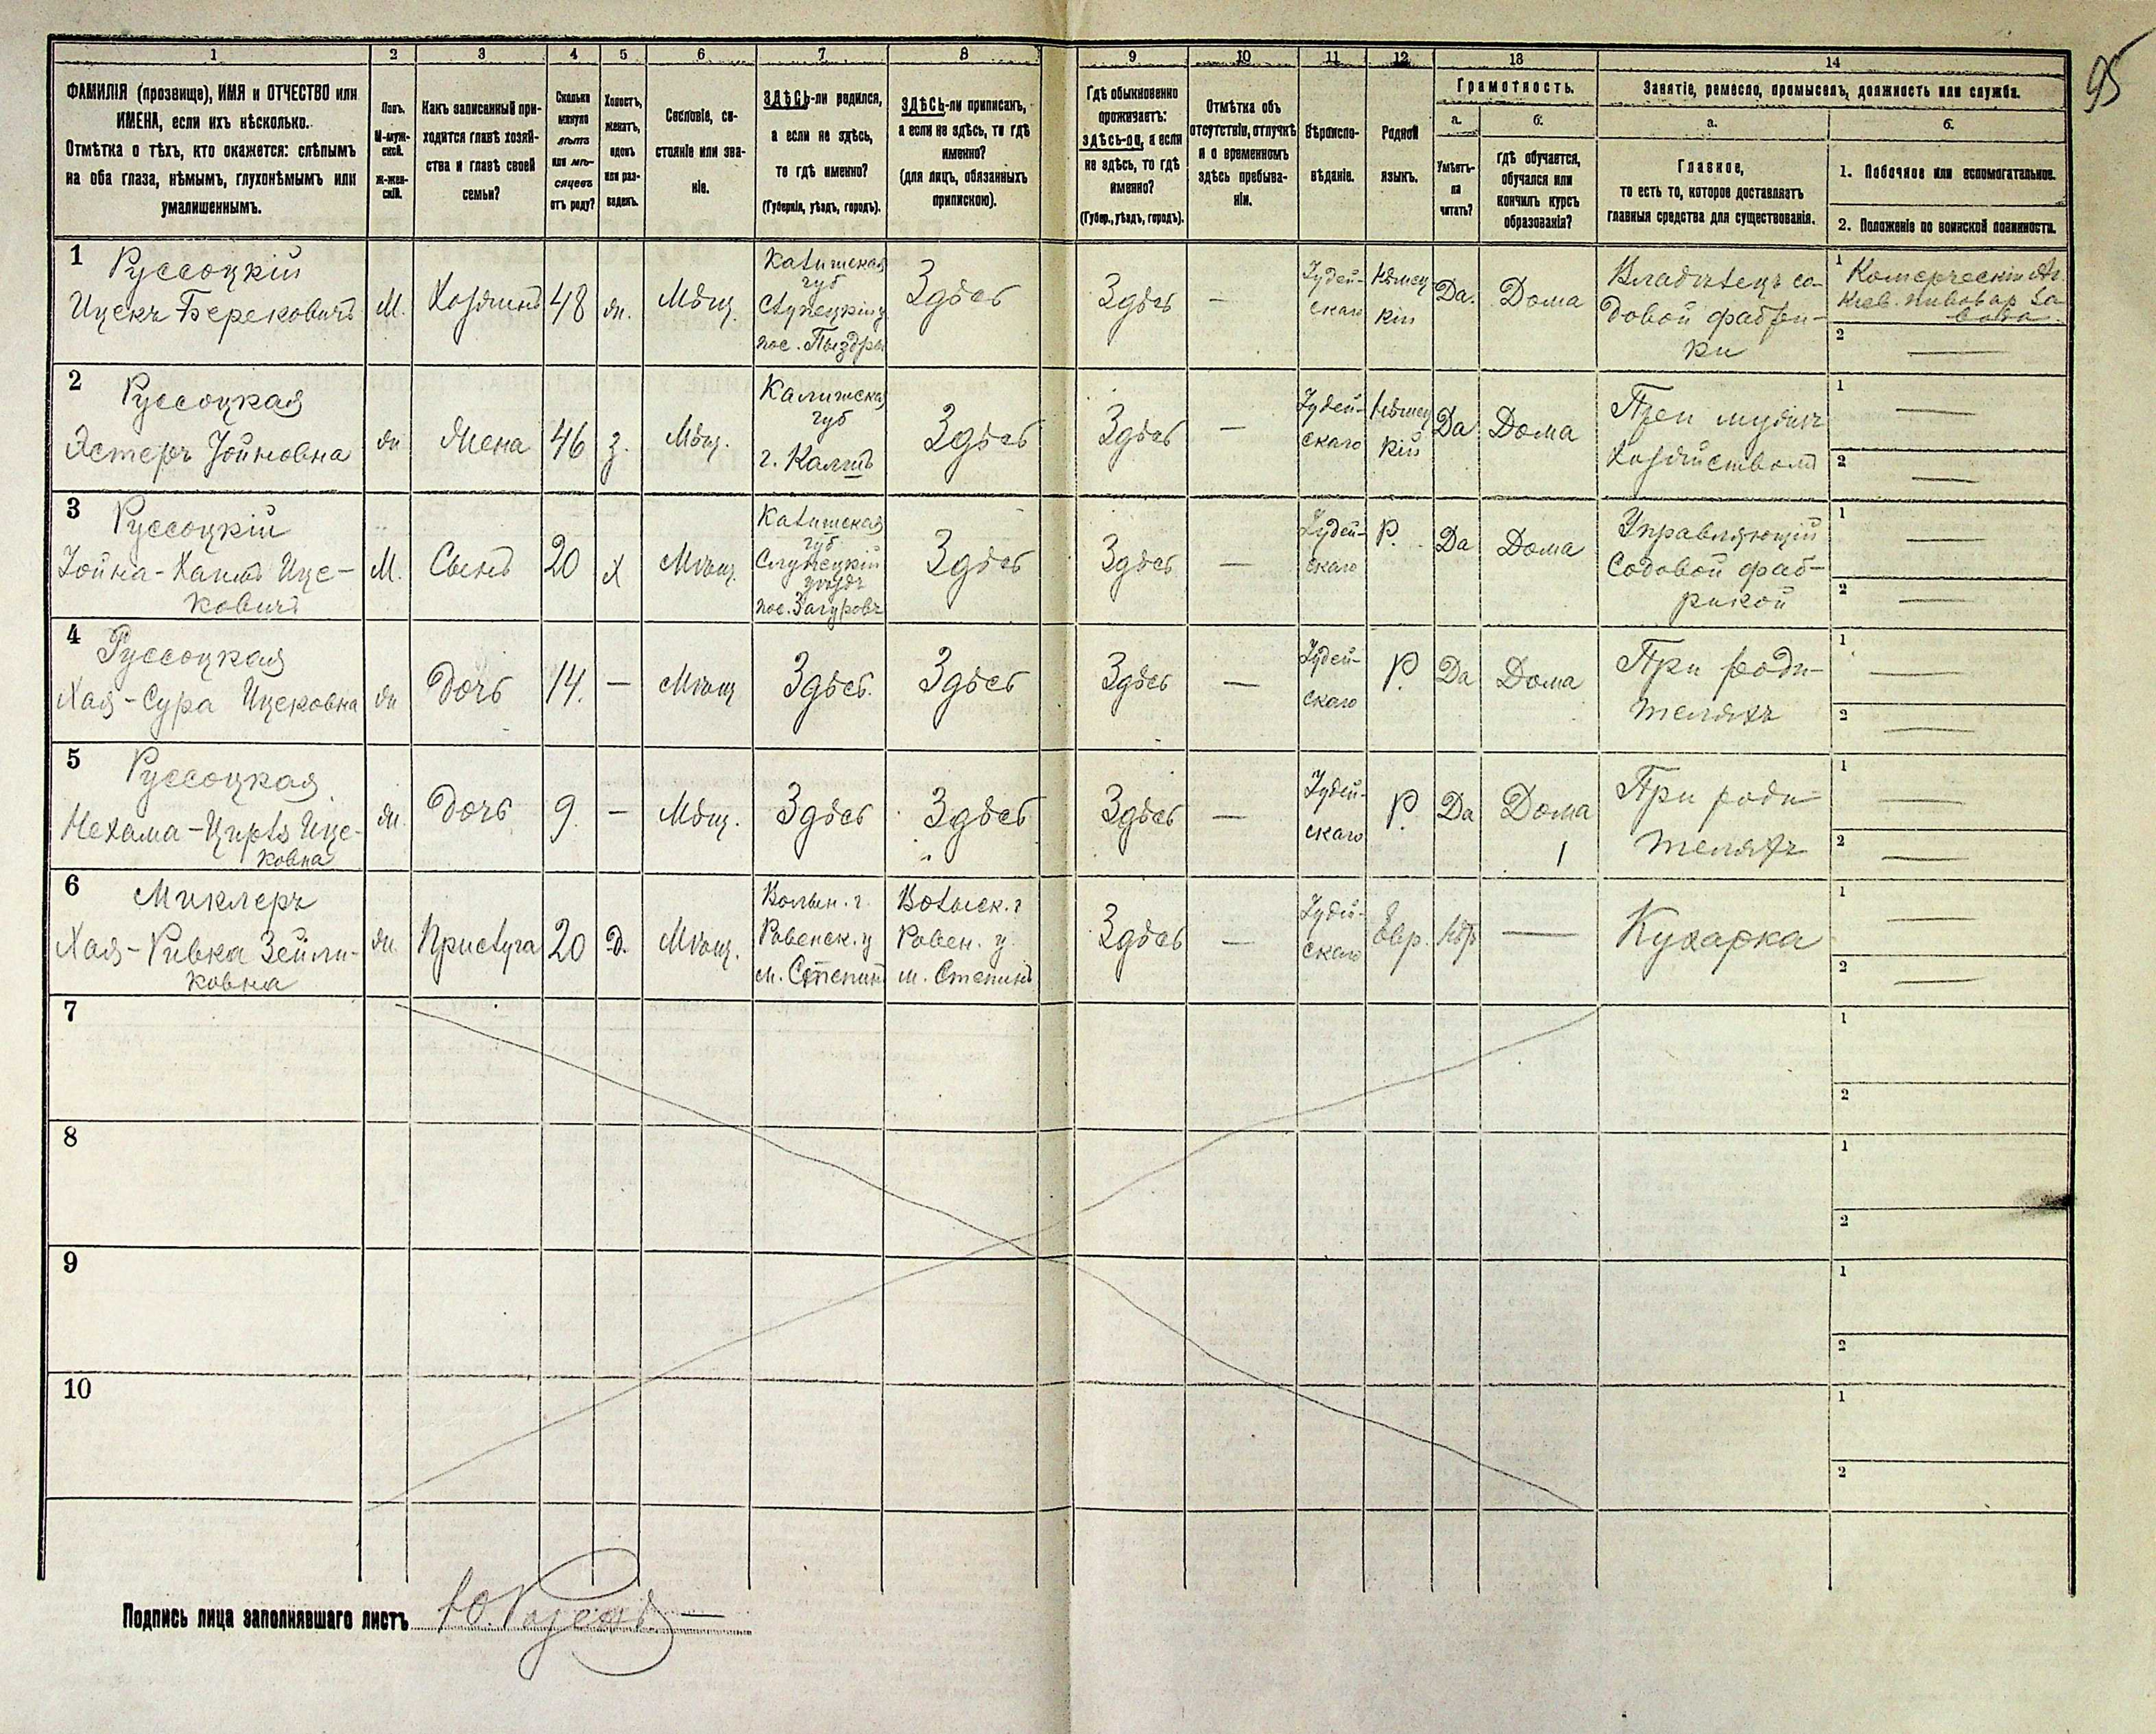 95
1
2
3
4
5
6
7
8
9
10
11
12
13
14
ФАМИЛІЯ (прозвище), ИМЯ и ОТЧЕСТВО или
ИМЕНА, если ихъ нѣсколько.
Отмѣтка о тѣхъ, кто окажется: слѣпымъ
на оба глаза, нѣмымъ, глухонѣмымъ или
умалишеннымъ.
Полъ.
М-муж-
ской.
Ж-жен-
скій.
Какъ записанный при-
ходится главѣ хозяй-
ства и главѣ своей
семьи?
Сколько
минуло
лѣтъ
или мѣ-
сяцевъ
отъ роду?
Холостъ,
женатъ,
вдовъ
или раз-
веденъ.
Сословіе, со-
стояніе или зва-
ніе.
ЗДѢСЬ-ли родился,
а если не здѣсь,
то гдѣ именно?
(Губернія, уѣздъ, городъ).
ЗДѢСЬ-ли приписанъ,
а если не здѣсь, то гдѣ
именно?
(для лицъ, обязанныхъ
припискою).
Гдѣ обыкновенно
проживаетъ:
здѣсь-ли, а если
не здѣсь, то гдѣ
именно?
(Губер., уѣздъ, городъ).
Отмѣтка объ
отсутствіи, отлучкѣ
и о временномъ
здѣсь пребыва-
ніи.
Вѣроиспо-
вѣданіе.
Родной
языкъ.
Грамотность.
а.
Умѣетъ-
ли
читать?
б.
гдѣ обучается,
обучался или
кончилъ курсъ
образованія?
Занятіе, ремесло, промыселъ, должность или служба.
а.
Главное,
то есть то, которое доставляетъ
главныя средства для существованія.
б.
1. Побочное или вспомогательное.
2. Положеніе по воинской повинности.
1
Руссоцкій
Ицекъ Берековичъ
М.
Хозяинъ
48
ж.
Мѣщ.
Калишская
губ
Слупецкій у
пос. Пыздры
Здѣсь
Здѣсь
—
Іудей-
скаго
Нѣмец
кій
Да.
Дома
Владѣлецъ со-
довой фабри-
ки
1
Комерческій Аг.
Кіев. пивовар за
вода
2
—
2
Руссоцкая
Эстеръ Іойновна
ж
Жена
46
з.
Мѣщ.
Калишская
губ
г. Калишъ
Здѣсь
Здѣсь
—
Іудей-
скаго
Нѣмец
кій
Да
Дома
При мужѣ
Хозяйствомъ
1
—
2
—
3
Руссоцкій
Іойна-Хаимъ Ице-
ковичъ
М.
Сынъ
20
х
Мѣщ.
Калишская
губ.
Слупецкій
уѣздъ
пос. Загуровъ
Здѣсь
Здѣсь
—
Іудей-
скаго
Р.
Да
Дома
Управляющій
Содовой фаб-
рикой
1
—
2
—
4
Руссоцкая
Хая-Сура Ицековна
ж
Дочь
14.
—
Мѣщ
Здѣсь.
Здѣсь
Здѣсь
—
Іудей-
скаго
Р.
Да
Дома
При роди-
теляхъ
1
—
2
—
5
Руссоцкая
Нехама-Цирль Ице-
ковна
ж.
Дочь
9.
—
Мѣщ.
Здѣсь
Здѣсь
Здѣсь
—
Іудей-
скаго
Р.
Да
Дома
При роди-
теляхъ
1
—
2
—
6
Миклеръ
Хая-Ривка Зейли-
ковна
ж.
Прислуга
20
Д.
Мѣщ.
Волын. г.
Ровенск. у
м. Степинъ
Волынск. г
Ровен. у
м. Степинь
Здѣсь
—
Іудей-
скаго
Евр.
Нѣтъ
—
Кухарка
1
—
2
—
7
1
2
8
1
2
9
1
2
10
1
2
Подпись лица заполнявшаго листъ